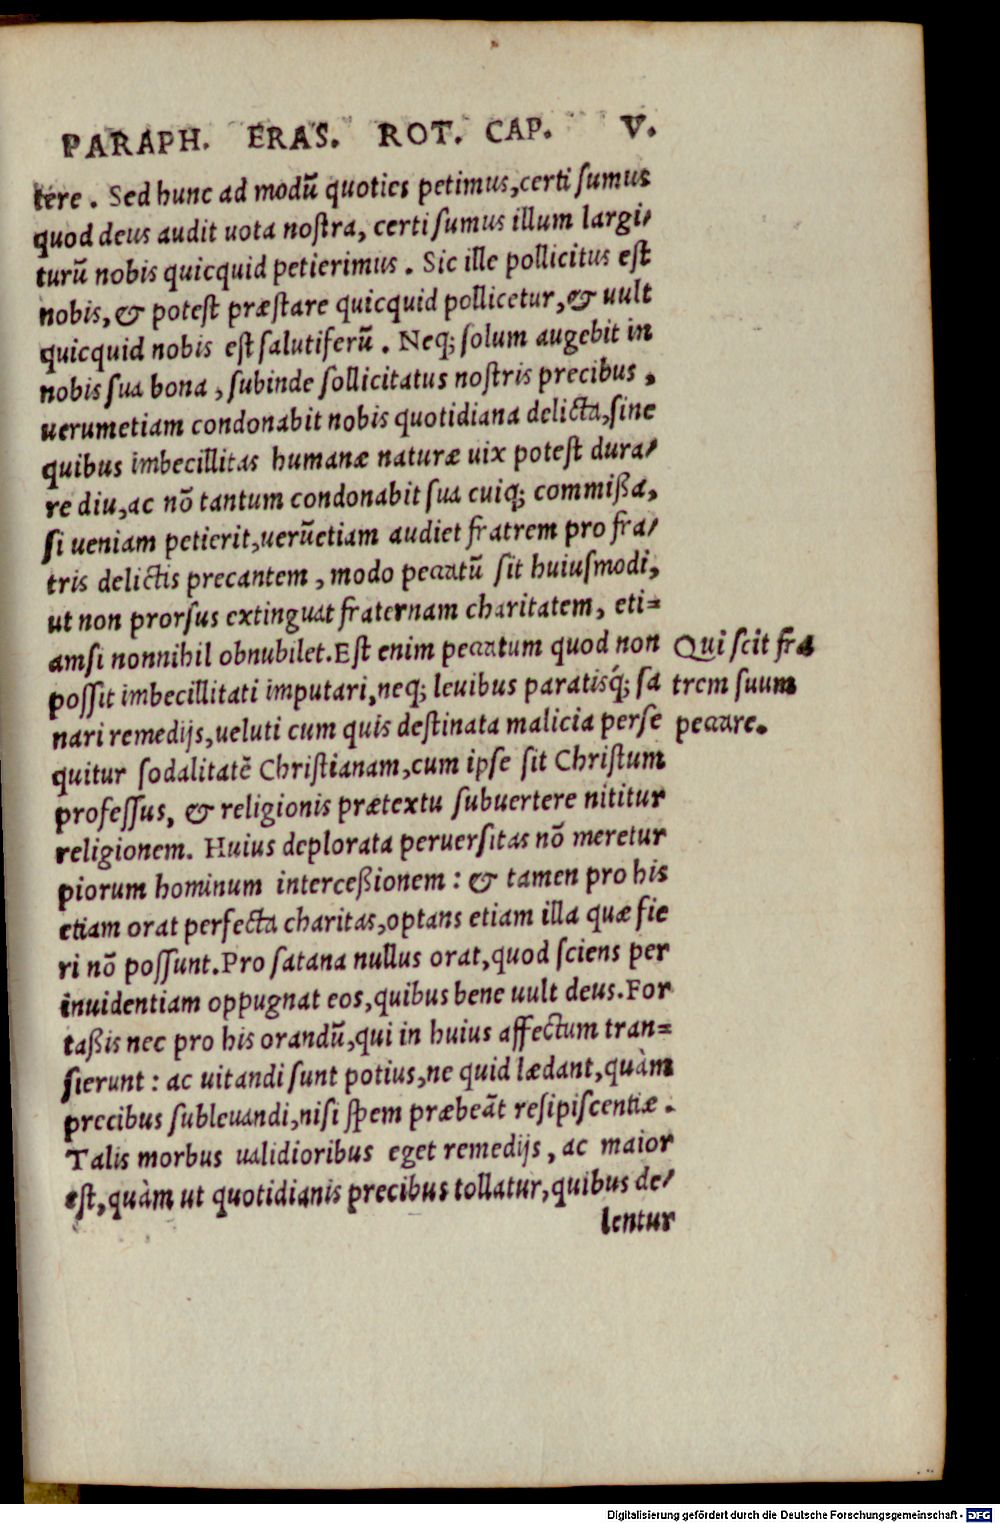 PARAPH. ERAS. ROT. CAP. V.
tere. Sed hunc ad modũ quoties petimus, certi sumus
quod deus audit uota nostra, certi sumus illum largi/
turũ nobis quicquid petierimus. Sic ille pollicitus est
nobis, & potest præstare quicquid pollicetur, & uult
quicquid nobis est salutiferũ. Neq; solum augebit in
nobis sua bona, subinde sollicitatus nostris precibus,
uerumetiam condonabit nobis quotidiana delicta, sine
quibus imbecillitas humanæ naturæ uix potest dura/
re diu, ac nõ tantum condonabit sua cuiq; commißa,
si ueniam petierit, uerũetiam audiet fratrem pro fra/
tris delictis precantem, modo peccatũ sit huiusmodi,
ut non prorsus extinguat fraternam charitatem, eti=
amsi nonnihil obnubilet. Est enim peccatum quod non
possit imbecillitati imputari, neq; leuibus paratisq́; sa
nari remedijs, ueluti cum quis destinata malicia perse
quitur sodalitatẽ Christianam, cum ipse sit Christum
professus, & religionis prætextu subuertere nititur
religionem. Huius deplorata peruersitas nõ meretur
piorum hominum interceßionem: & tamen pro his
etiam orat perfecta charitas, optans etiam illa quæ fie
ri nõ possunt. Pro satana nullus orat, quod sciens per
inuidentiam oppugnat eos, quibus bene uult deus. For
taßis nec pro his orandũ, qui in huius affectum tran=
sierunt: ac uitandi sunt potius, ne quid lædant, quàm
precibus subleuandi, nisi spem præbeãt resipiscentiæ.
Talis morbus ualidioribus eget remedijs, ac maior
est, quàm ut quotidianis precibus tollatur, quibus de/
lentur
Qui scit fra
trem suum
peccare.
Digitalisierung gefördert durch die Deutsche Forschungsgemeinschaft - DFG